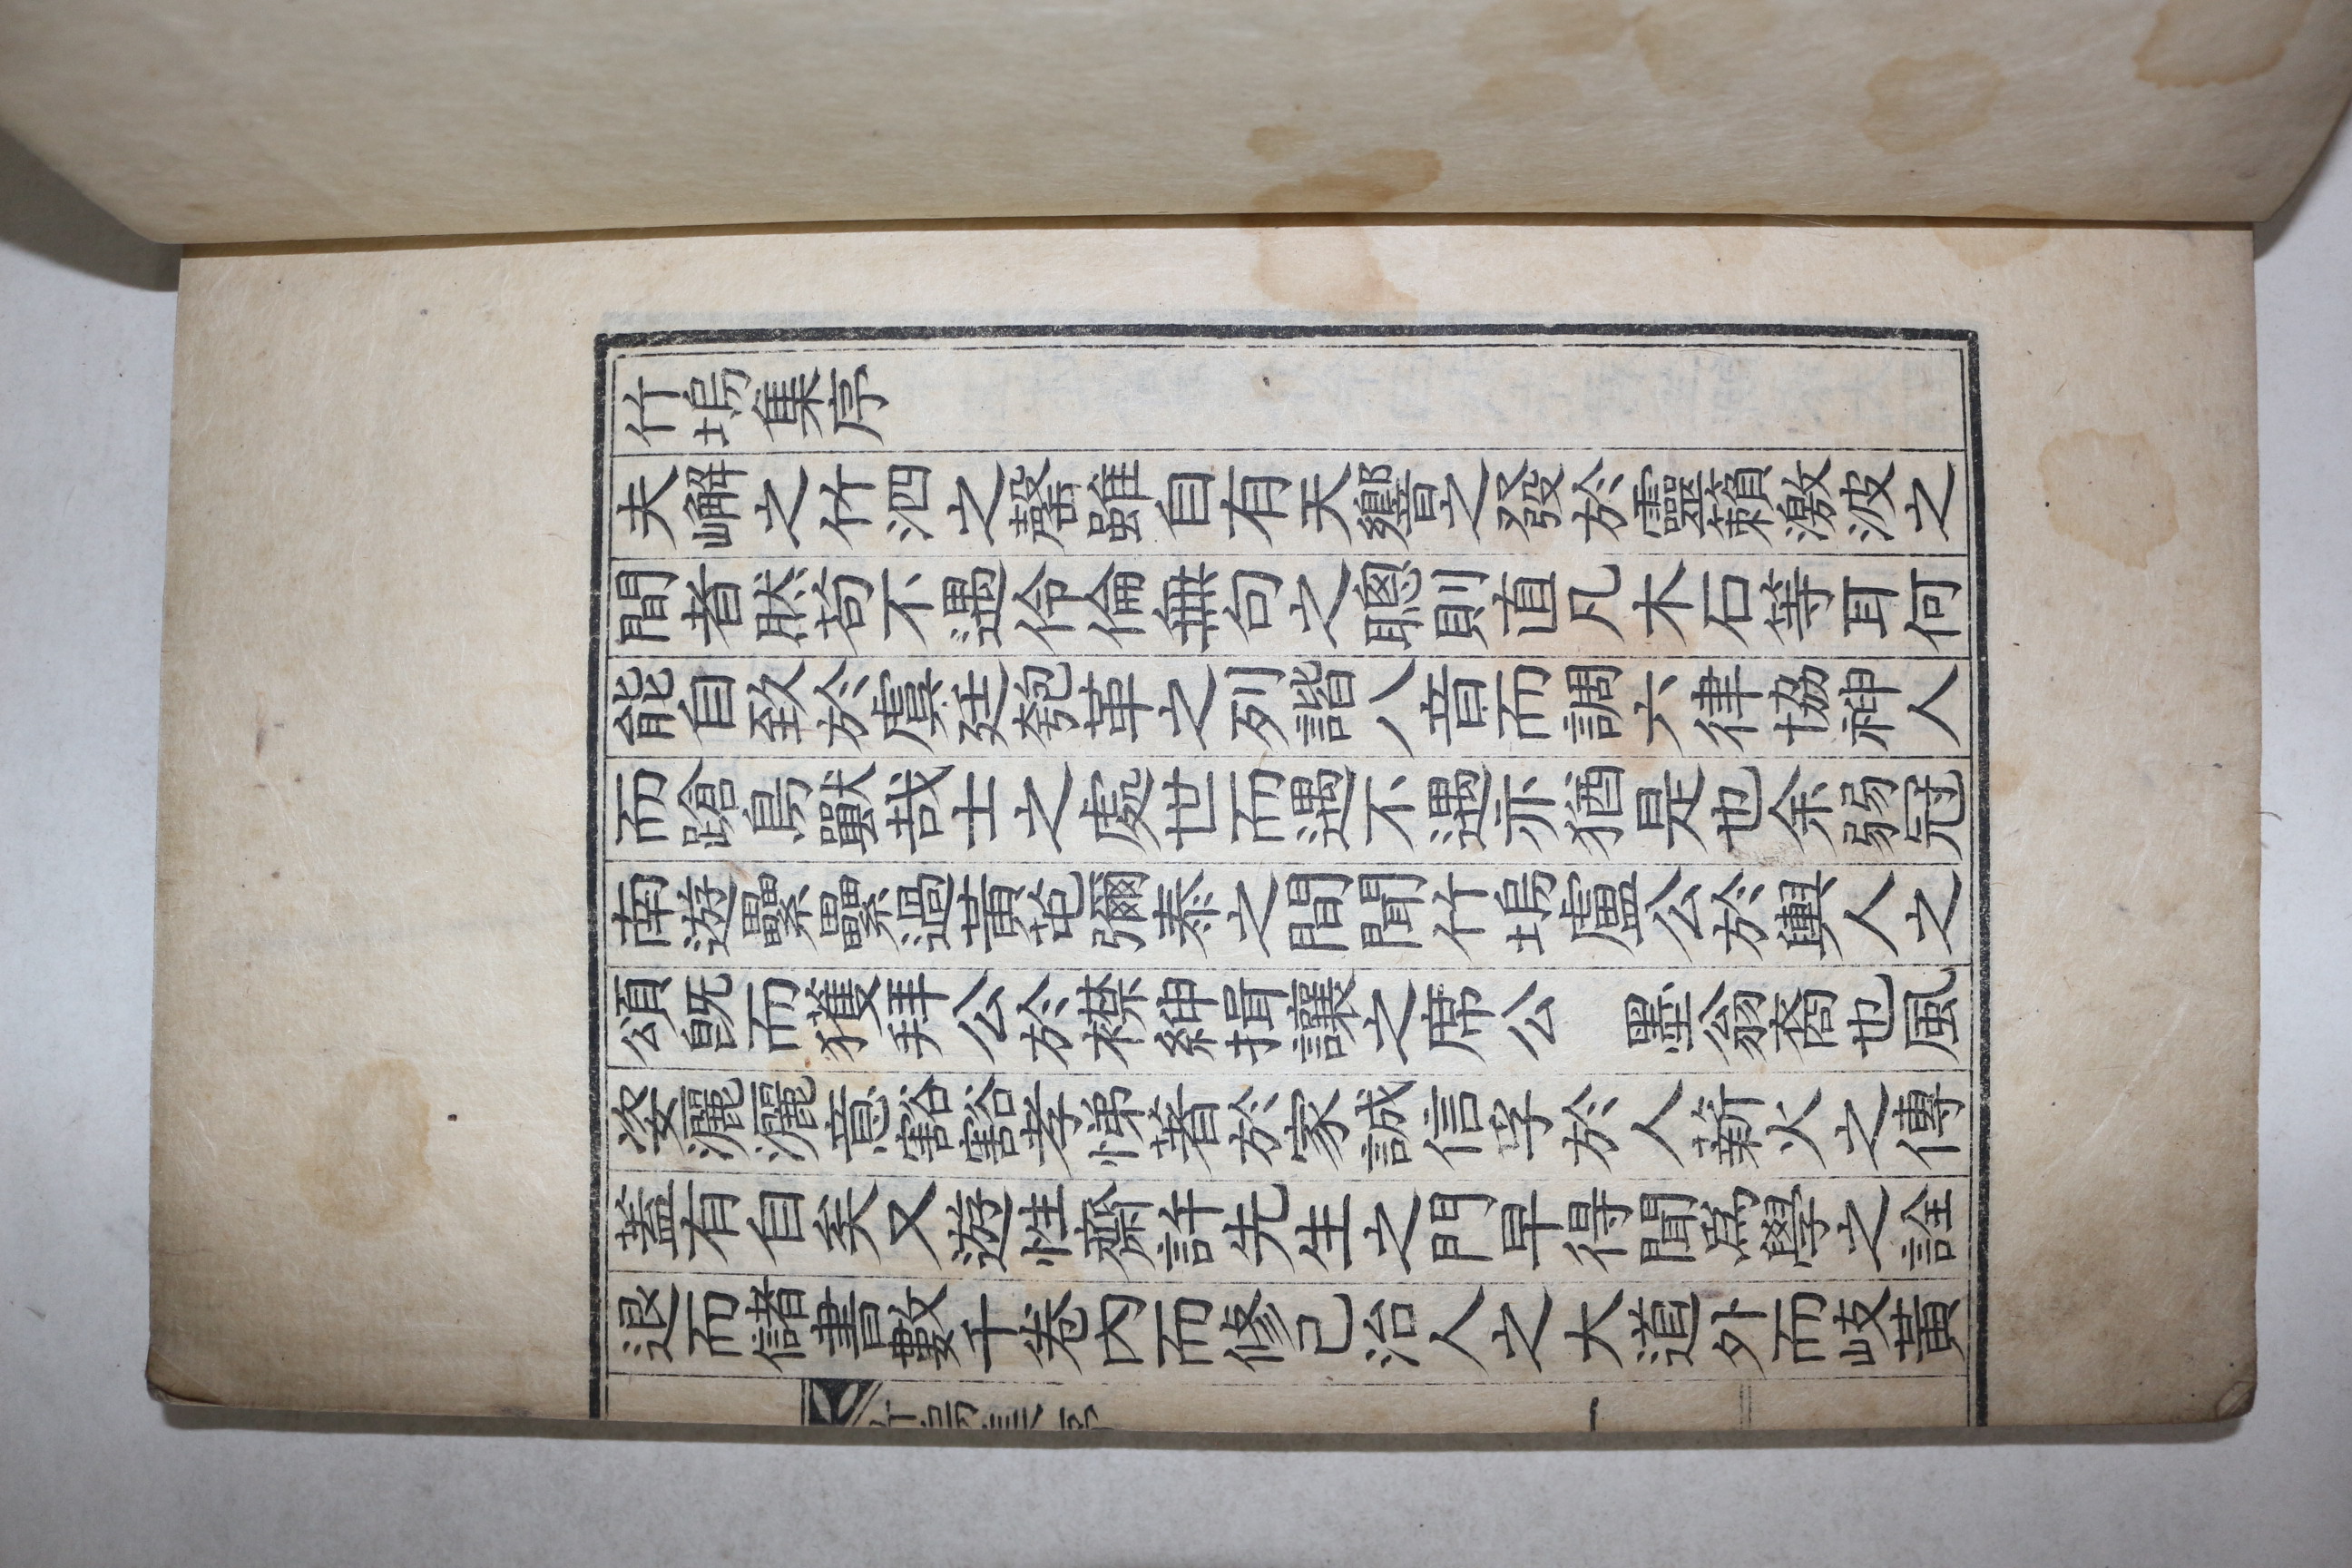 竹塢集序
夫嶰之竹泗之磬雖自有天響之發於靈籟激波之
間者然苟不遇伶倫無句之聰則直凡木石等耳何
能自致於虞廷匏革之列諧八音而調六律協神人
而蹌鳥獸哉士之處世而遇不遇亦猶是也余弱冠
南遊纍纍過黃苞彌泰之間聞竹塢盧公於輿人之
頌旣而獲拜公於襟紳揖讓之席公 墨翁裔也風
姿灑灑意豁豁孝悌著於家誠信孚於人薪火之傳
蓋有自矣又遊性齋許先生之門早得聞爲學之詮
退而儲書數千卷內而修己治人之大道外而岐黃
竹塢集序 一